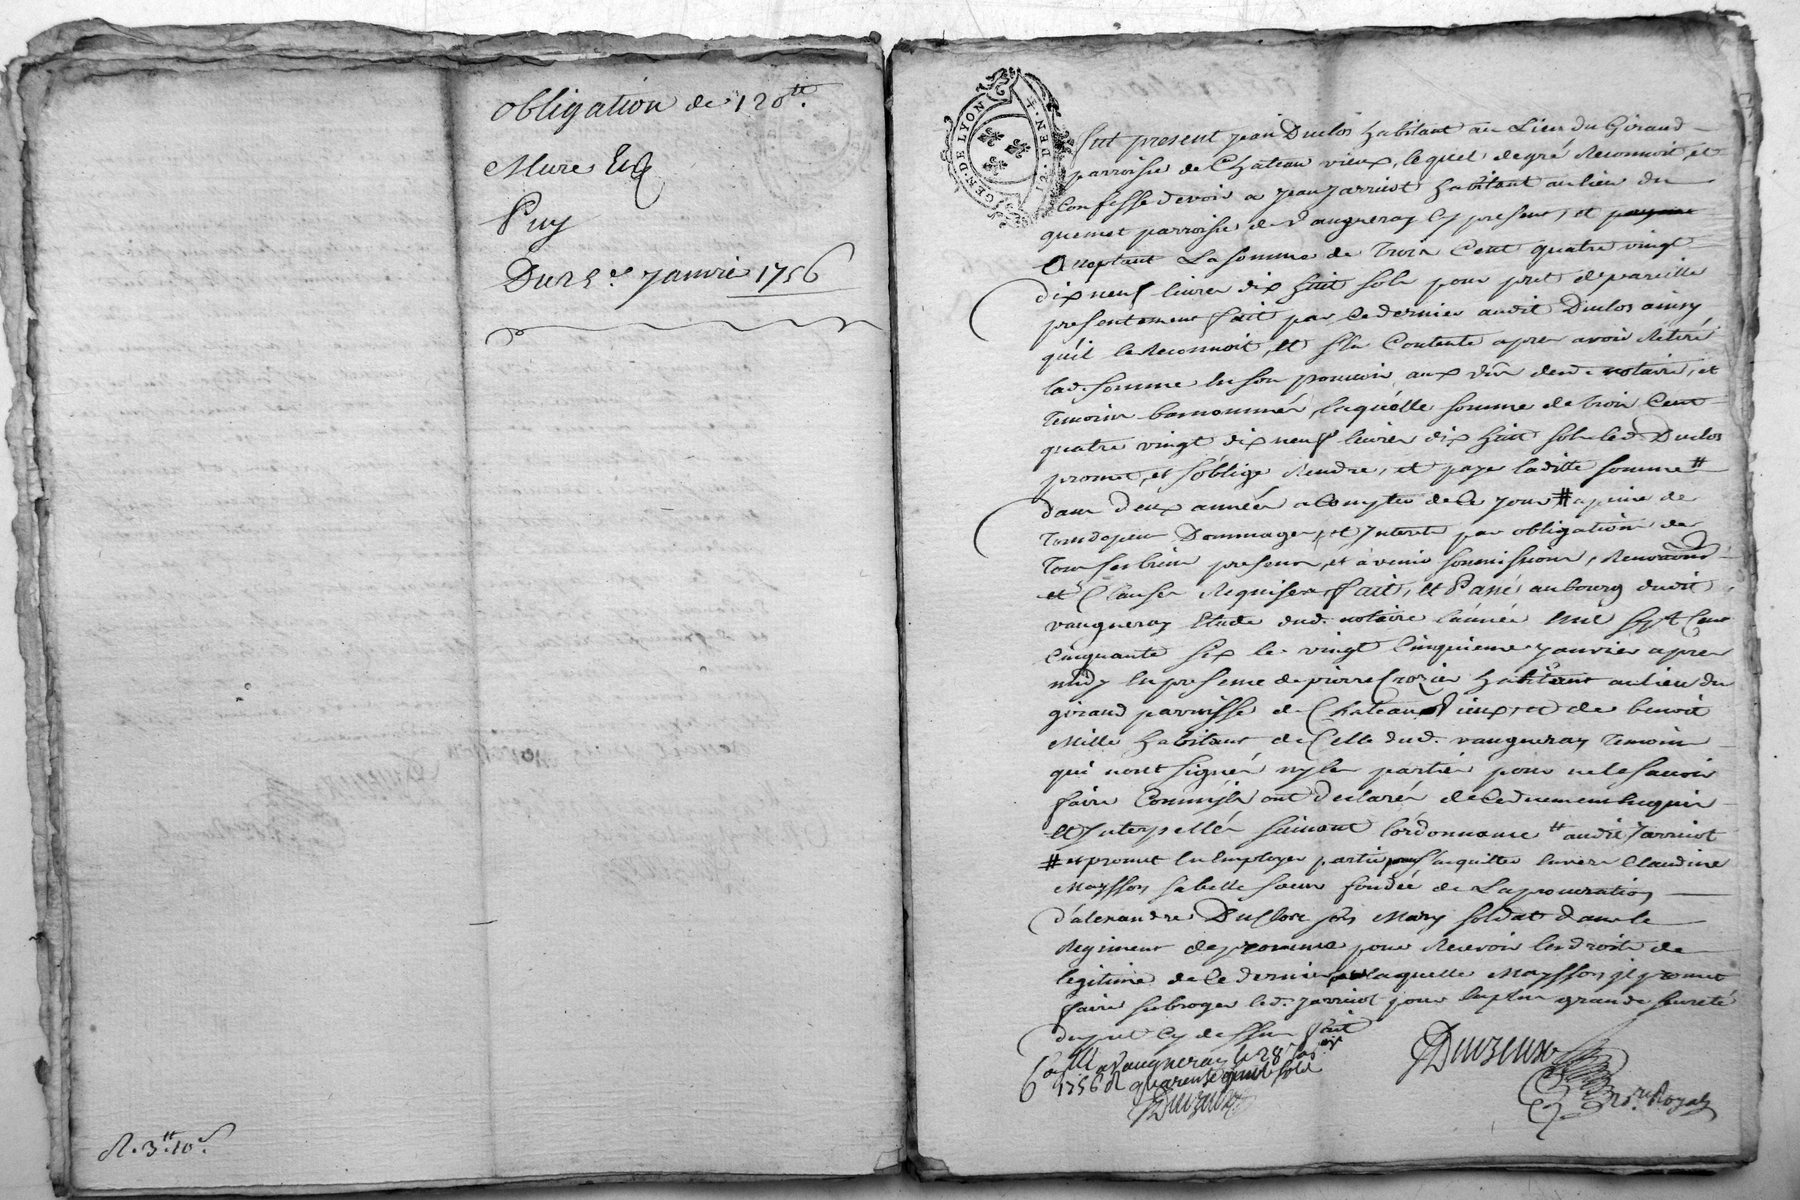 Obligation de 120tt.
Mure
Puy
Du 25e. Janvie 1756
R. 3tt. 10s.
GEN. DE LYON
12. DEN.
fut present jean Duclos habitant au Lieu du Girand
parroisse de Chateau vieux, lequel de gré Reconnoit, et
Confesse devoir a jean jarricot habitant au lieu du
quemet parroisse de Vaugneray Cy present, et
acceptant La somme de trois Cent quatre vingt
dix neuf livres dix huit sols pour pret de pareille
presentement fait par Ce dernier audit Duclos ainsy
qu'il le Reconnoit, et s'en Contente apres avoir Retiré
lad. somme en son pouvoir aux vûe dud. notaire, et
temoins bas nommés, laquelle somme de trois Cent
quatre vingt dix neuf livres dix huit sols led. Duclos
promet, et s'oblige Rendre, et paye laditte somme #
dans deux années a Compter de Ce jour # a peine de
tous depens Dommages, et Interets par obligation de
tous ses biens presens, et a venir soumissions, Renonciations
et Clauses Requises fait, et Passé au bourg dudit
vaugneray Etude dud. notaire l'année Mil sept Cent
Cinquante six le vingt Cinquieme janvier apres
midy En presence de pierre Crozier habitant au lieu du
girand parroisse de Chateau Vieux, et de benoit
Mille habitant de Celle dud. vaugneray temoins
qui n'ont signés ny les parties pour ne le savoir
faire Comm'ils ont declarés de Ce duement Enquis
et Interpellés suivant l'ordonnance # audit Jarricot
# et promet En Employer partie pour s'acquitter envers Claudine
Maysson sa belle soeur fondée de La procuration
d'alexandre Duclos son Mary soldat dans le
Regiment de pour Recevoir les droits de
legitime de Ce dernier laquelle Maysson il promet
faire subroger led. jarricot pour la plus grande seureté
du pret Cy dessus
Con.llé a Vaugneray le 28
1756 R quarente sols